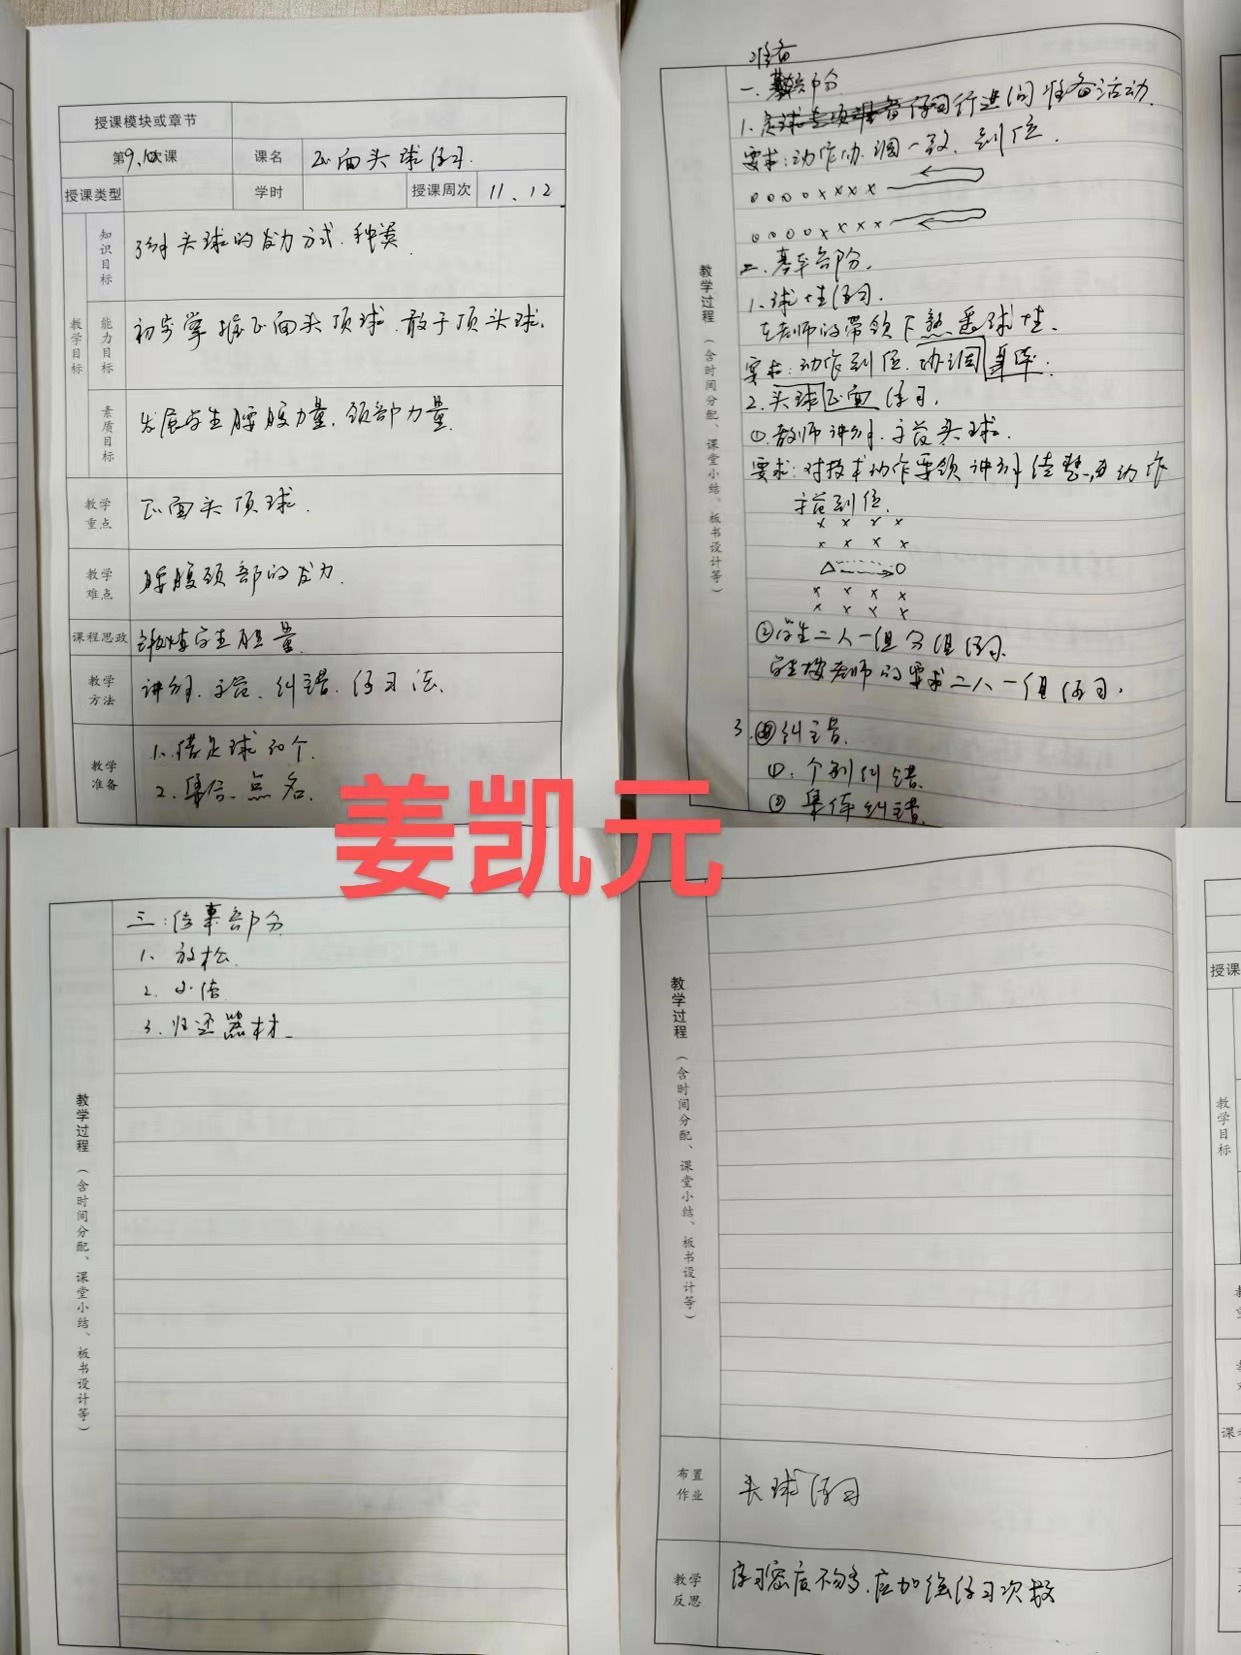 授课模块或章节
第9、10次课 课名 正面头球练习.
授课类型 学时 授课周次 11、12
教学目标
知识目标 了解头球的发力方式、种类.
能力目标 初步掌握正面头顶球、敢于顶头球.
素质目标 发展学生腰腹力量、颈部力量.
教学重点 正面头顶球.
教学难点 腰腹颈部的发力.
课程思政 锻炼学生胆量.
教学方法 讲解、示范、纠错、练习法.
教学准备 1、借足球30个.
2、集合、点名.
教学过程(含时间分配、课堂小结、板书设计等)
准备
一、部分
1、行进间准备活动.
要求:动作协调一致、到位.
二、基本部分.
1、球性练习.
在老师的带领下熟悉球性.
要求:动作到位、协调
2、头球正面练习.
①、教师讲解、示范头球.
要求:对技术动作要领讲解清楚、动作
示范到位.
②学生二人一组分组练习.
学生按老师的要求二人一组练习.
3、纠错.
①、个别纠错.
② 集体纠错.
姜凯元
教学过程(含时间分配、课堂小结、板书设计等)
三:结束部分
1、放松.
2、小结
3、归还器材.
教学过程(含时间分配、课堂小结、板书设计等)
布置作业 头球练习
教学反思 练习密度不够多,应加强练习次数
授课
教学目标
课